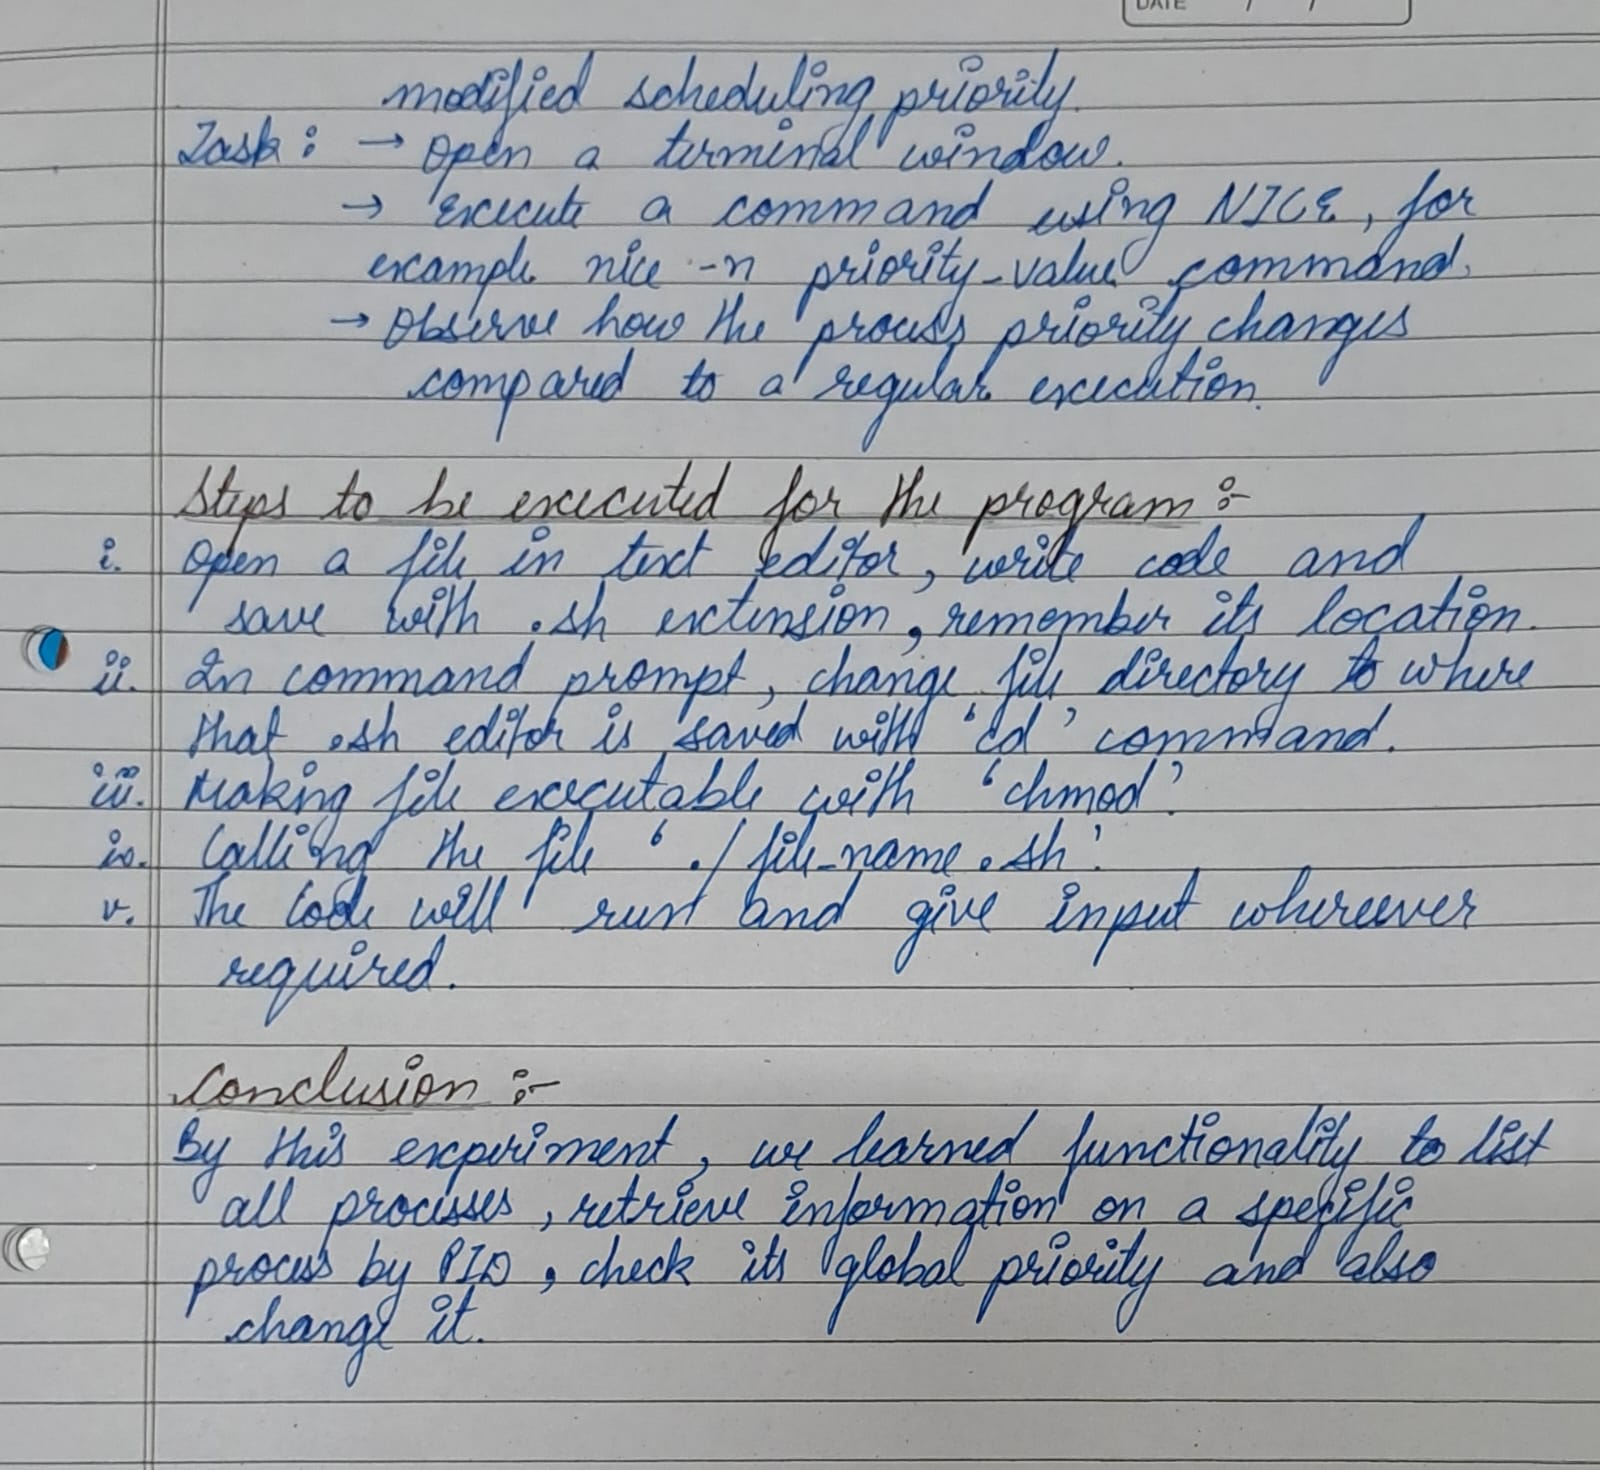 DATE / /
modified scheduling priority.
Task : → Open a terminal window.
→ Execute a command using NICE, for
example nice -n priority-value command.
→ Observe how the process priority changes
compared to a regular execution.
Steps to be executed for the program :-
i. Open a file in text editor, write code and
save with .sh extension, remember its location.
ii. In command prompt, change file directory to where
that .sh editor is saved with 'cd' command.
iii. Making file executable with 'chmod'.
iv. Calling the file './file_name.sh'.
v. The code will run and give input whereever
required.
Conclusion :-
By this experiment, we learned functionality to list
all processes, retrieve information on a specific
process by PID, check its global priority and also
change it.